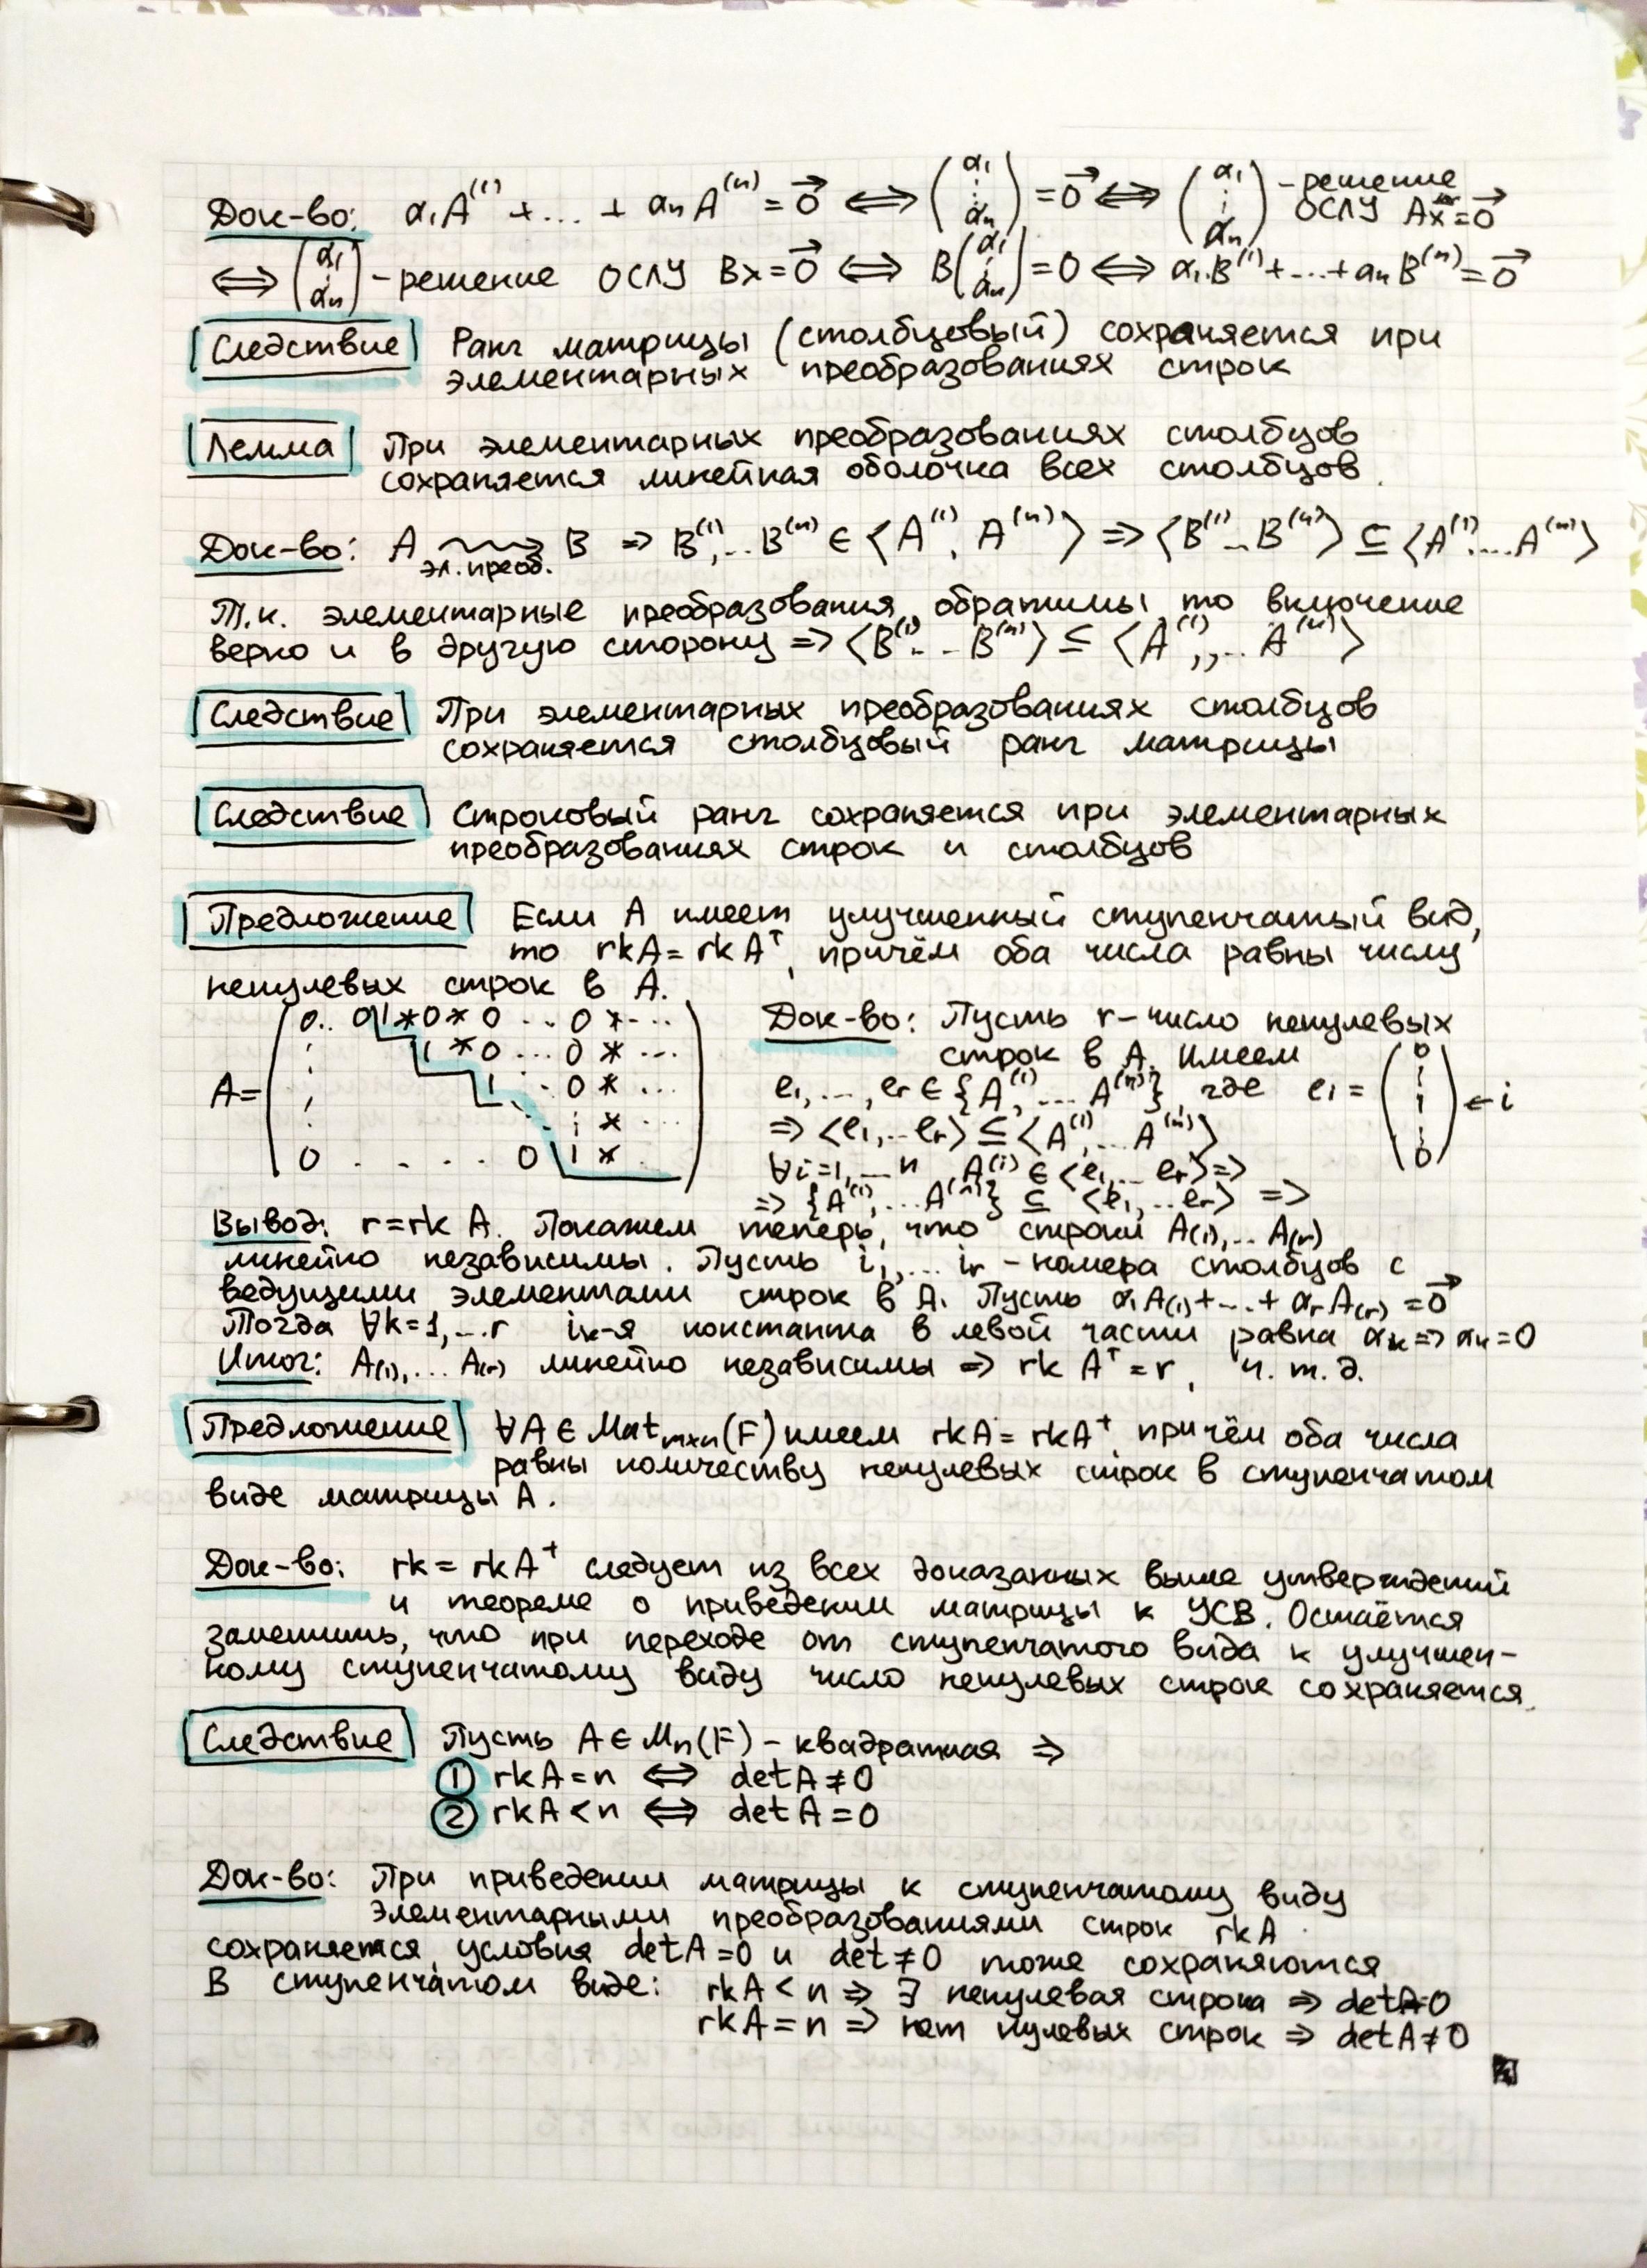 Док-во: α₁A⁽¹⁾+...+ αₙA⁽ⁿ⁾ = 0⃗ ⟺ (α₁ ⋮ αₙ) = 0⃗ ⟺ (α₁ ⋮ αₙ) - решение ОСЛУ Ax = 0⃗
⟺ (α₁ ⋮ αₙ) - решение ОСЛУ Bx = 0⃗ ⟺ B(α₁ ⋮ αₙ) = 0 ⟺ α₁B⁽¹⁾+...+aₙB⁽ⁿ⁾ = 0⃗
Следствие Ранг матрицы (столбцовый) сохраняется при
элементарных преобразованиях строк
Лемма При элементарных преобразованиях столбцов
сохраняется линейная оболочка всех столбцов.
Док-во: A ⇝ эл.преоб. B => B⁽¹⁾,...B⁽ⁿ⁾ ∈ <A⁽¹⁾, A⁽ⁿ⁾> => <B⁽¹⁾...B⁽ⁿ⁾> ⊆ <A⁽¹⁾...A⁽ⁿ⁾>
Т.к. элементарные преобразования обратимы, то включение
верно и в другую сторону => <B⁽¹⁾...B⁽ⁿ⁾> ⊆ <A⁽¹⁾,,..A⁽ⁿ⁾>
Следствие При элементарных преобразованиях столбцов
сохраняется столбцовый ранг матрицы
Следствие Строковый ранг сохраняется при элементарных
преобразованиях строк и столбцов
Предложение Если A имеет улучшенный ступенчатый вид,
то rkA = rkAᵀ, причём оба числа равны числу
ненулевых строк в A.
A = (0.. 0 1 * 0 * 0 ... 0 * ...
1 * 0 ... 0 * ...
1 .. 0 * ...
1 * ...
0 . . . . 0 1 * ..)
Док-во: Пусть r - число ненулевых
строк в A. Имеем
e₁,...,eᵣ ∈ {A⁽¹⁾,...A⁽ⁿ⁾}, где e₁ = (0 ⋮ 1 ⋮ 0) ← i
=> <e₁,..eᵣ> ⊆ <A⁽¹⁾,...A⁽ⁿ⁾>
∀i=1,...n A⁽ⁱ⁾ ∈ <e₁,...eᵣ> =>
=> {A⁽¹⁾,...A⁽ⁿ⁾} ⊆ <e₁,...eᵣ> =>
Вывод: r = rk A. Покажем теперь, что строки A₍₁₎,...A₍ᵣ₎
линейно независимы. Пусть i₁,... iᵣ - номера столбцов с
ведущими элементами строк в A. Пусть α₁A₍₁₎+...+ αᵣA₍ᵣ₎ = 0⃗
Тогда ∀k=1,...r iₖ-я константа в левой части равна αₖ => αₖ=0
Итог: A₍₁₎,... A₍ᵣ₎ линейно независимы => rk Aᵀ = r, ч.т.д.
Предложение ∀A ∈ Matₘₓₙ(F) имеем rkA = rkAᵀ, причём оба числа
равны количеству ненулевых строк в ступенчатом
виде матрицы A.
Док-во: rk = rkAᵀ следует из всех доказанных выше утверждений
и теореме о приведении матрицы к УСВ. Остаётся
заметить, что при переходе от ступенчатого вида к улучшен-
ному ступенчатому виду число ненулевых строк сохраняется.
Следствие Пусть A ∈ Mₙ(F) - квадратная =>
① rkA = n ⟺ detA ≠ 0
② rkA < n ⟺ detA = 0
Док-во: При приведении матрицы к ступенчатому виду
элементарными преобразованиями строк rkA
сохраняется, условия detA = 0 и det ≠ 0 тоже сохраняются
В ступенчатом виде: rkA < n => ∃ ненулевая строка => detA=0
rkA = n => нет нулевых строк => detA ≠ 0